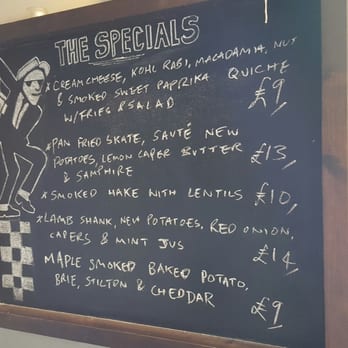 THE SPECIALS
* CREAM CHEESE, KOHL RABI, MACADAMIA, NUT
& SMOKED SWEET PAPRIKA QUICHE
W/FRIES & SALAD £9
* PAN FRIED SKATE, SAUTÉ NEW
POTATOES, LEMON CAPER BUTTER £13
& SAMPHIRE
* SMOKED HAKE WITH LENTILS £10
* LAMB SHANK, NEW POTATOES, RED ONION,
CAPERS & MINT JUS £14
MAPLE SMOKED BAKED POTATO,
BRIE, STILTON & CHEDDAR £9